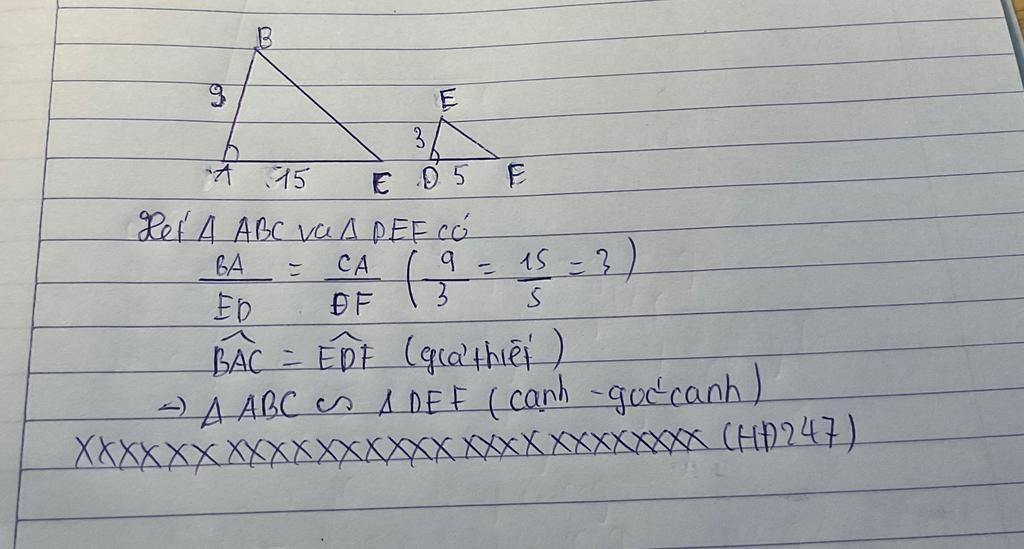 B
9
E
3
A 15 E D 5 E
Xét Δ ABC và Δ DEF có
BA/ED = CA/DF (9/3 = 15/5 = 3)
BAC = EDF (giả thiết)
=> Δ ABC ∽ Δ DEF (cạnh - góc cạnh)
XXXXXXXXXXXXXXXXXXXXXXXXXXXX (HD247)